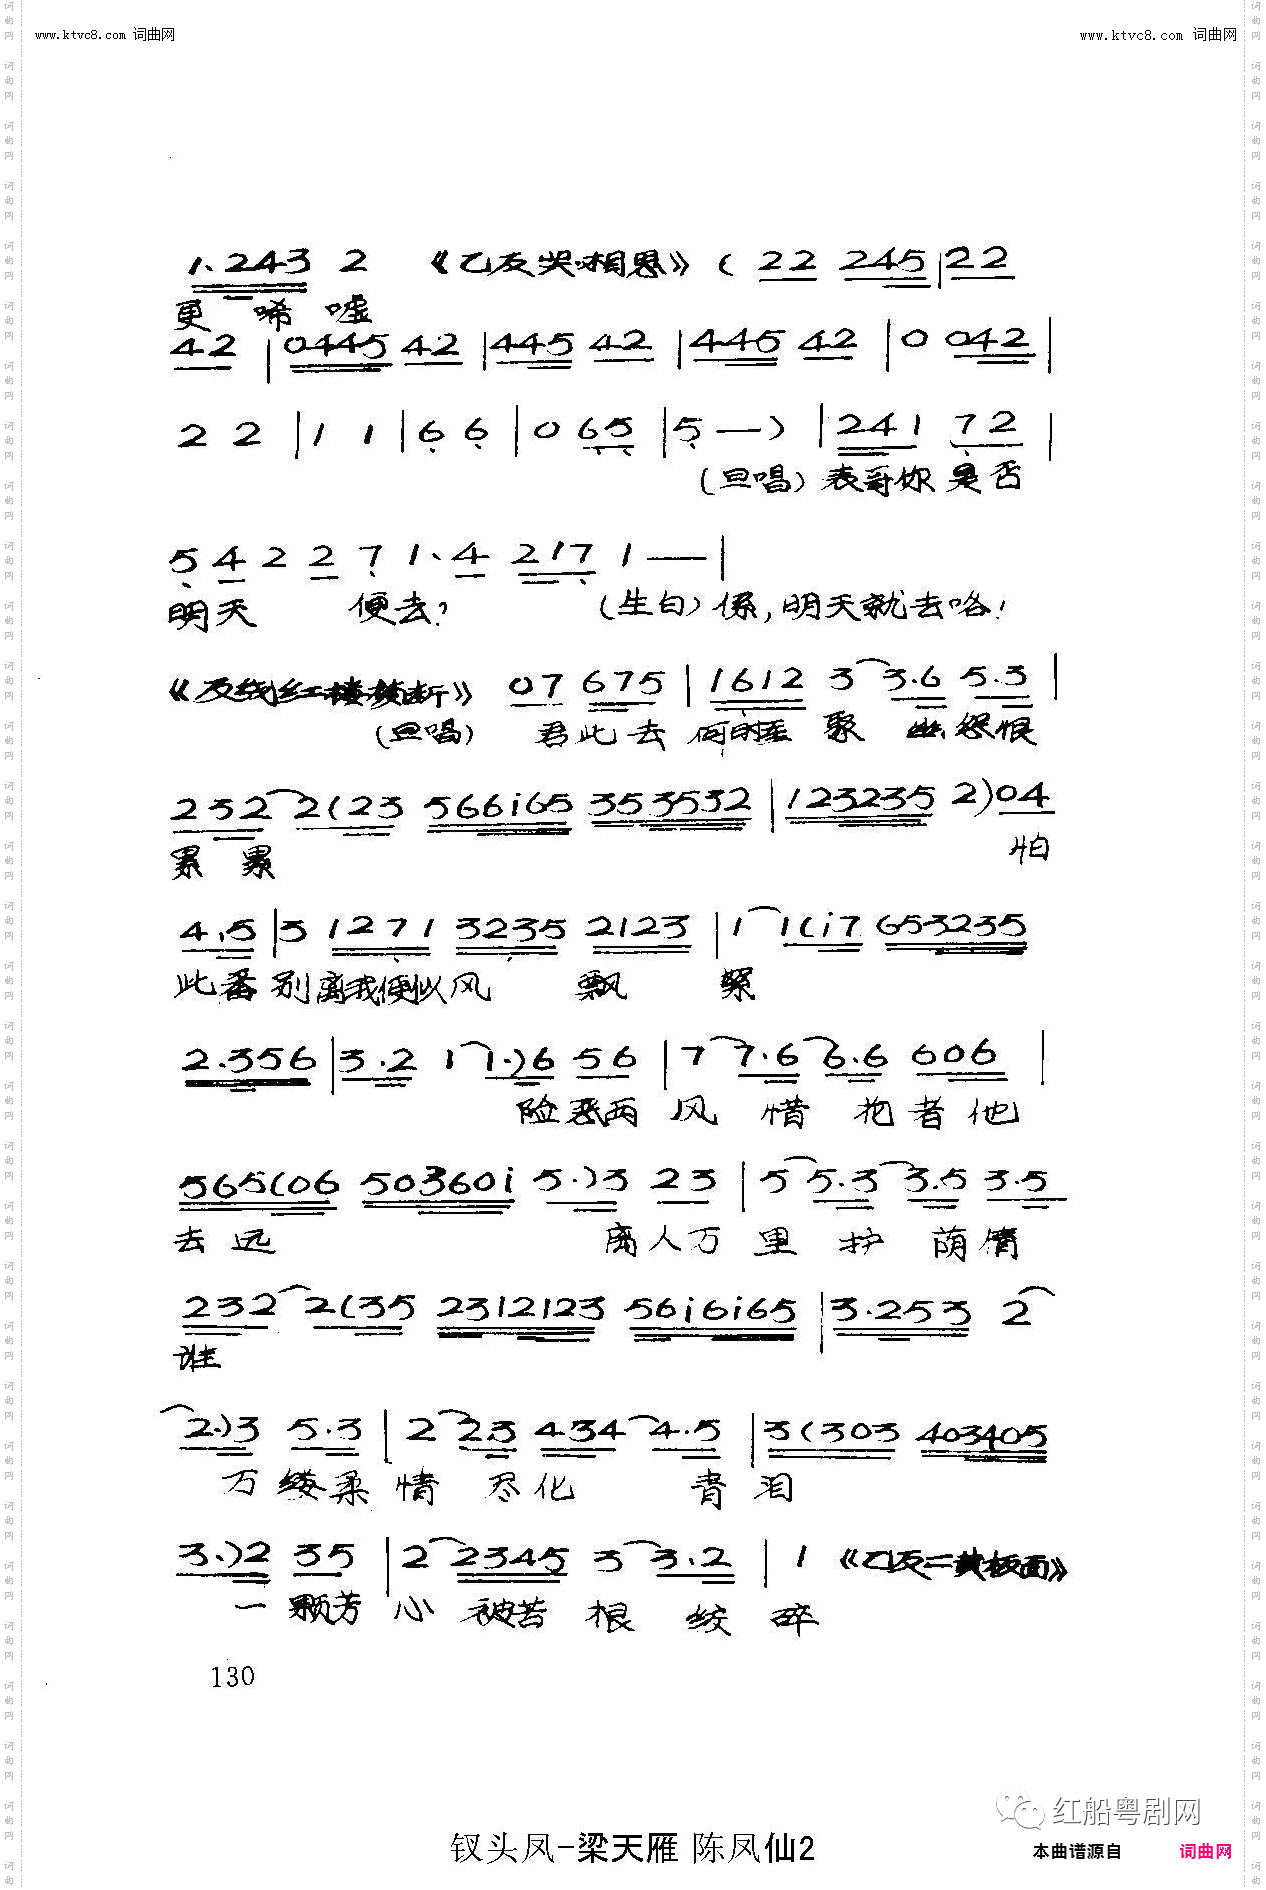 www.ktvc8.com 词曲网 www.ktvc8.com 词曲网
1.243 2 《乙反哭相思》( 22 245|22
更 唏 嘘
42 |0445 42 |445 42 |445 42 |0 042 |
2 2 |1 1 |6 6 |0 65 |5 —) |241 72 |
(旦唱) 表哥你 是否
5 4 2 2 7 1. 4 217 1 — |
明天 便去? (生白) 係,明天就去咯!
《反线红楼横断》 07 675 |1612 3 3.6 5.3 |
(旦唱) 君此去 何时至 聚 幽怨恨
232 2(23 566i65 353532 |123235 2)04
累 累 怕
4.5 |3 1271 3235 2123 |1 1(i7 653235
此番 别离我便似风 飘 絮
2.356 |3.2 1 1.)6 56 |7 7.6 6.6 606 |
险恶雨 风 惜 花者他
565(06 50360i 5.)3 23 |5 5.3 3.5 3.5
去 远 离人万 里 护 荫倩
232 2(35 2312123 56i6i65 |3.253 2
谁
2.)3 5.3 |2 2.3 434 4.5 |3(303 403405
万缕柔 情 尽化 青 泪
3.)2 35 |2 2345 3 3.2 |1 《乙反二黄板面》
一 颗芳 心 被苦 根 绞 碎
130
红船粤剧网
钗头凤-梁天雁 陈凤仙2
本曲谱源自 词曲网